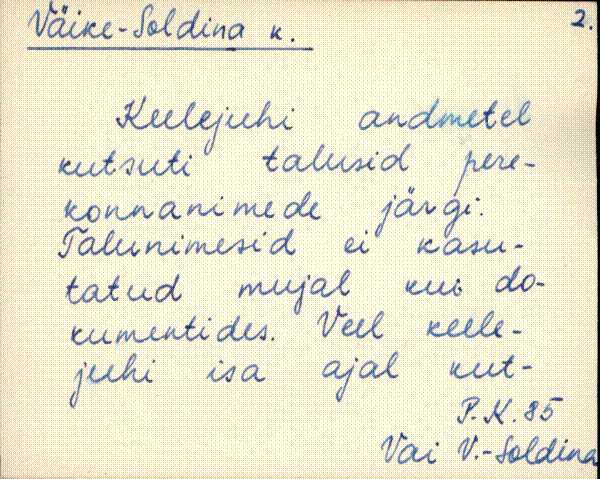 Väike-Soldina k.
2.
Keelejuhi andmetel
kutsuti talusid pere-
konnanimede järgi.
Talunimesid ei kasu-
tatud mujal kui do-
kumentides. Veel keele-
juhi isa ajal kut-
P.K. 85
Vai V.-Soldina